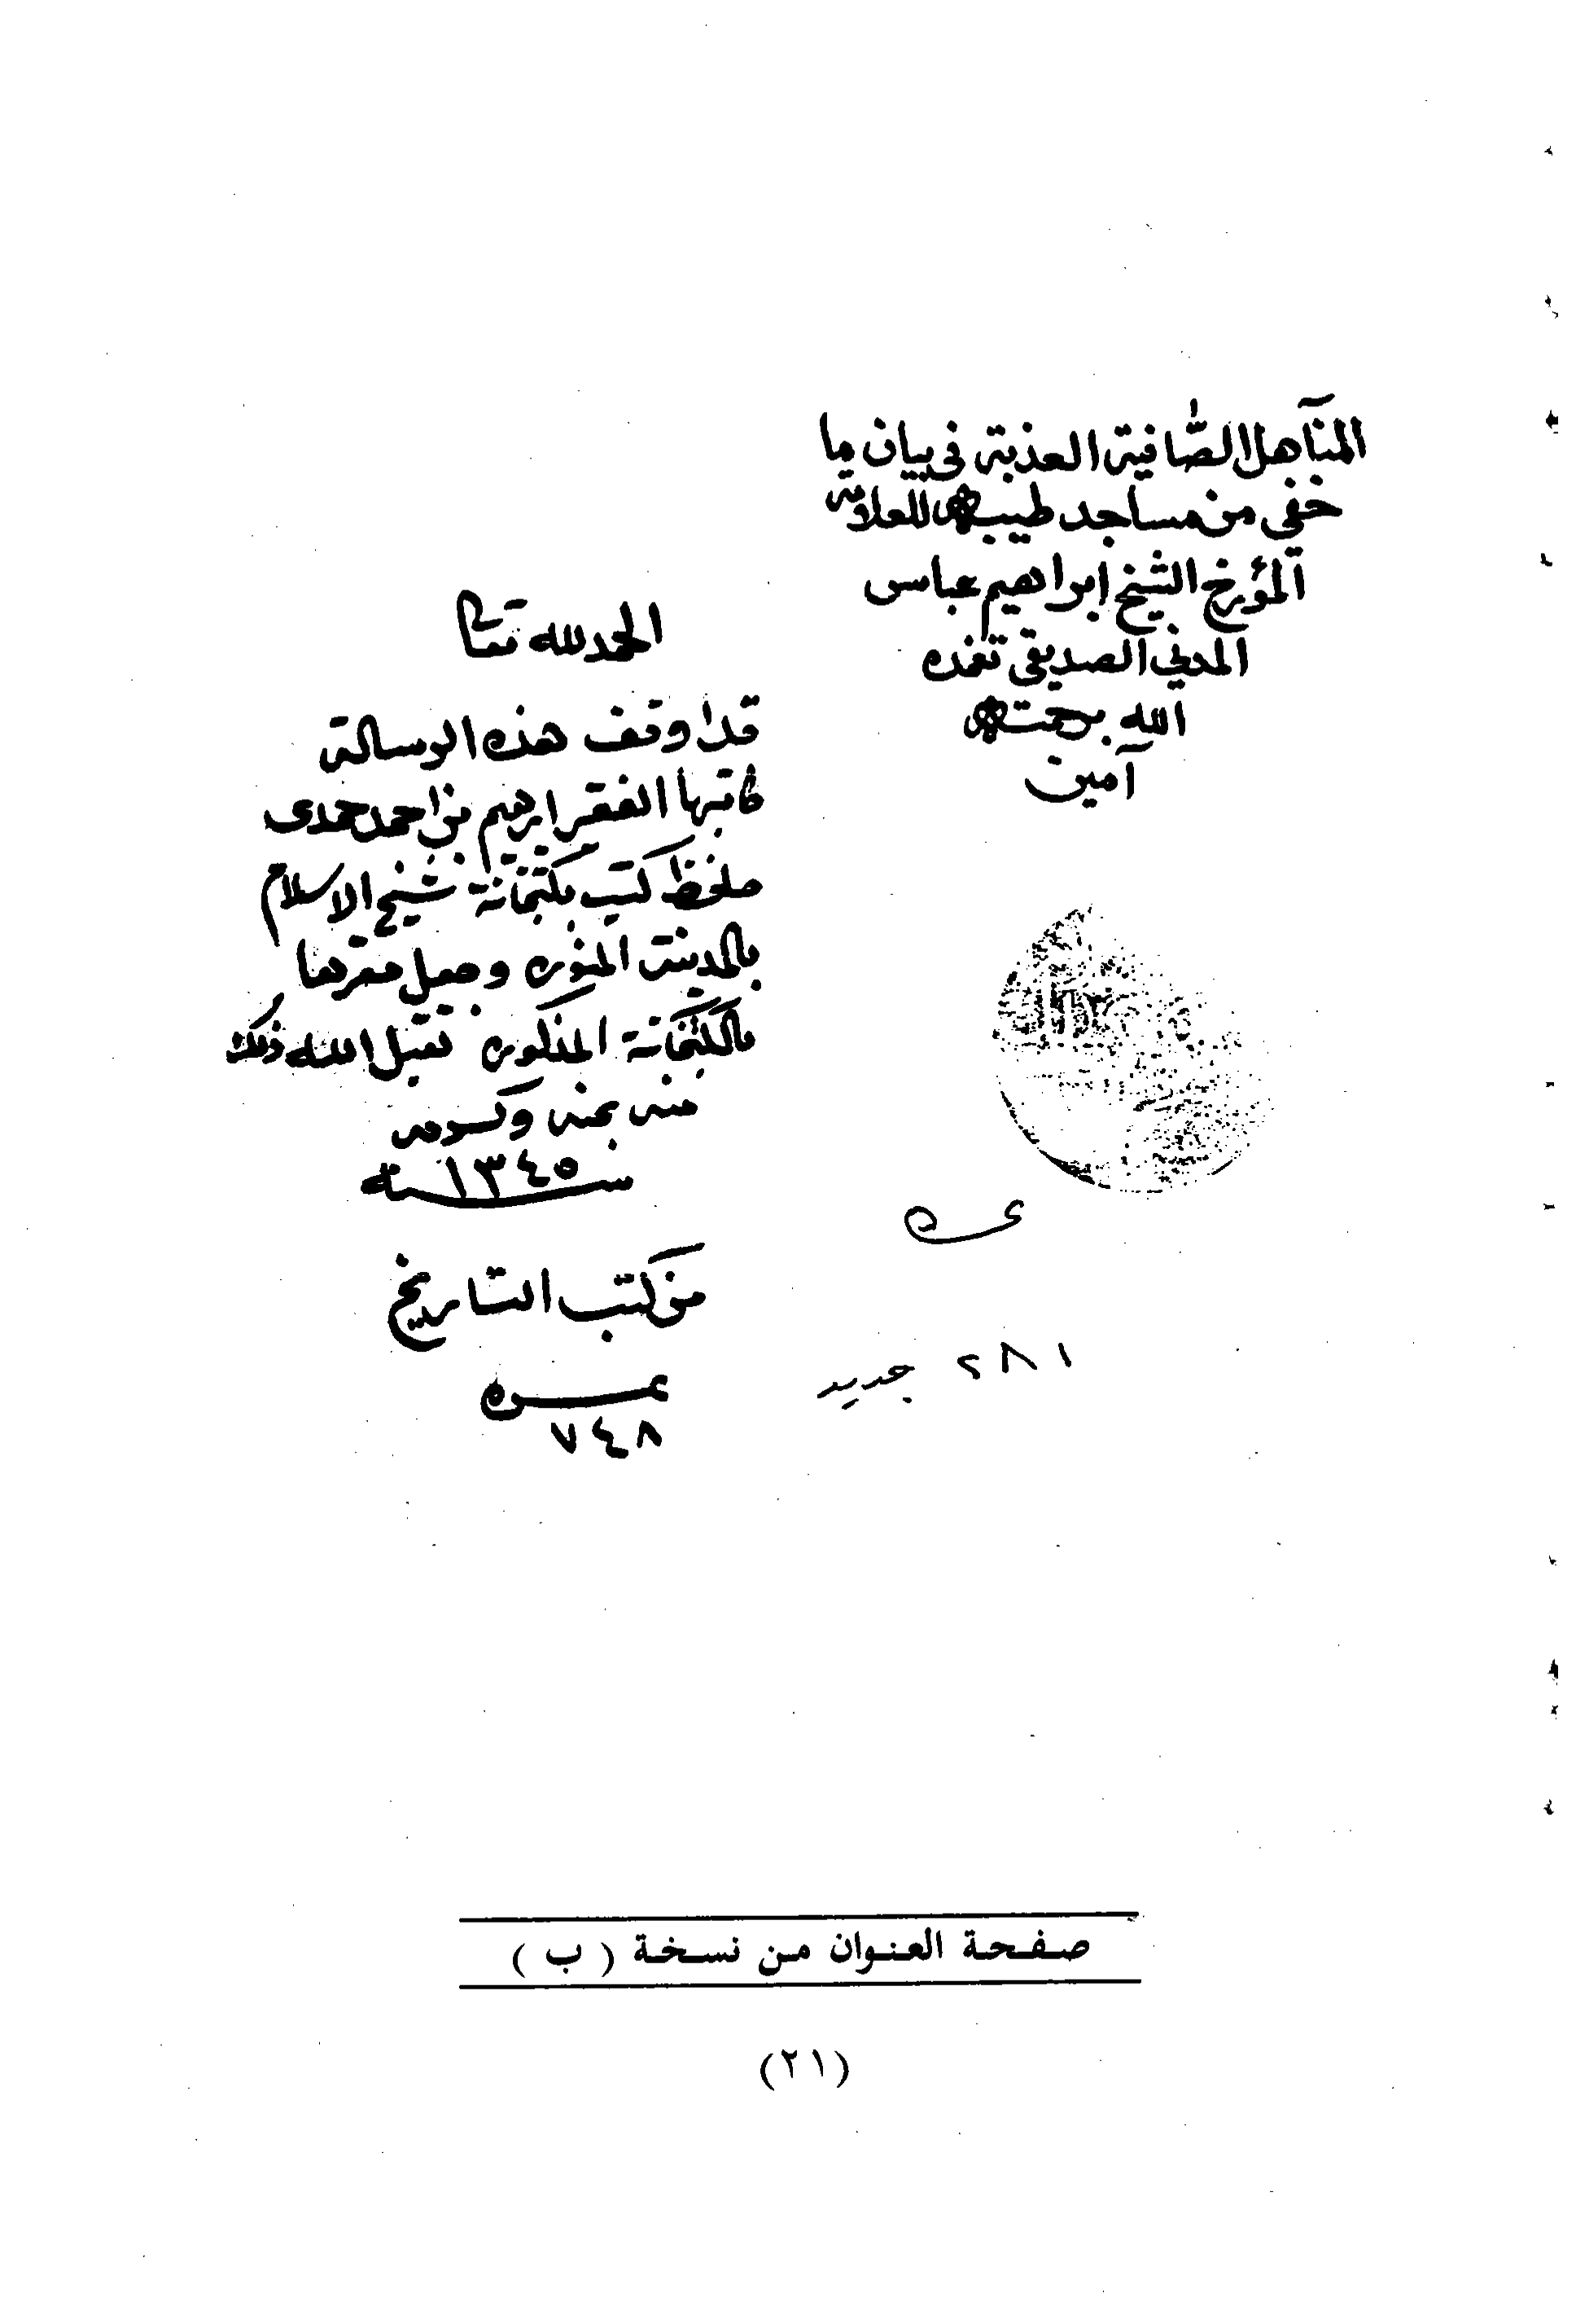 المنآهل الصّافية العذبة في بيان ما
خفي من مساجد طيبه للعلامة
المؤرخ الشيخ ابراهيم عباس
المدني الصديقي تغمده
الله برحمته
آمين
الحمد لله تعالى
قد اوقف هذه الرسالة
كاتبها الفقير ابرهيم بن احمد حمدى
محفظ كتب بكتبخانة شيخ الاسلام
بالمدينة المنوره وجعل مقرها
بالكتبخانة المذكوره تقبل الله ذلك
منه بمنه وكرمه
سنة ١٣٤٥
من كتب التاريخ
نمره
٧٤٨
٢٨١ جديد
صفحة العنوان من نسخة ( ب )
(٢١)